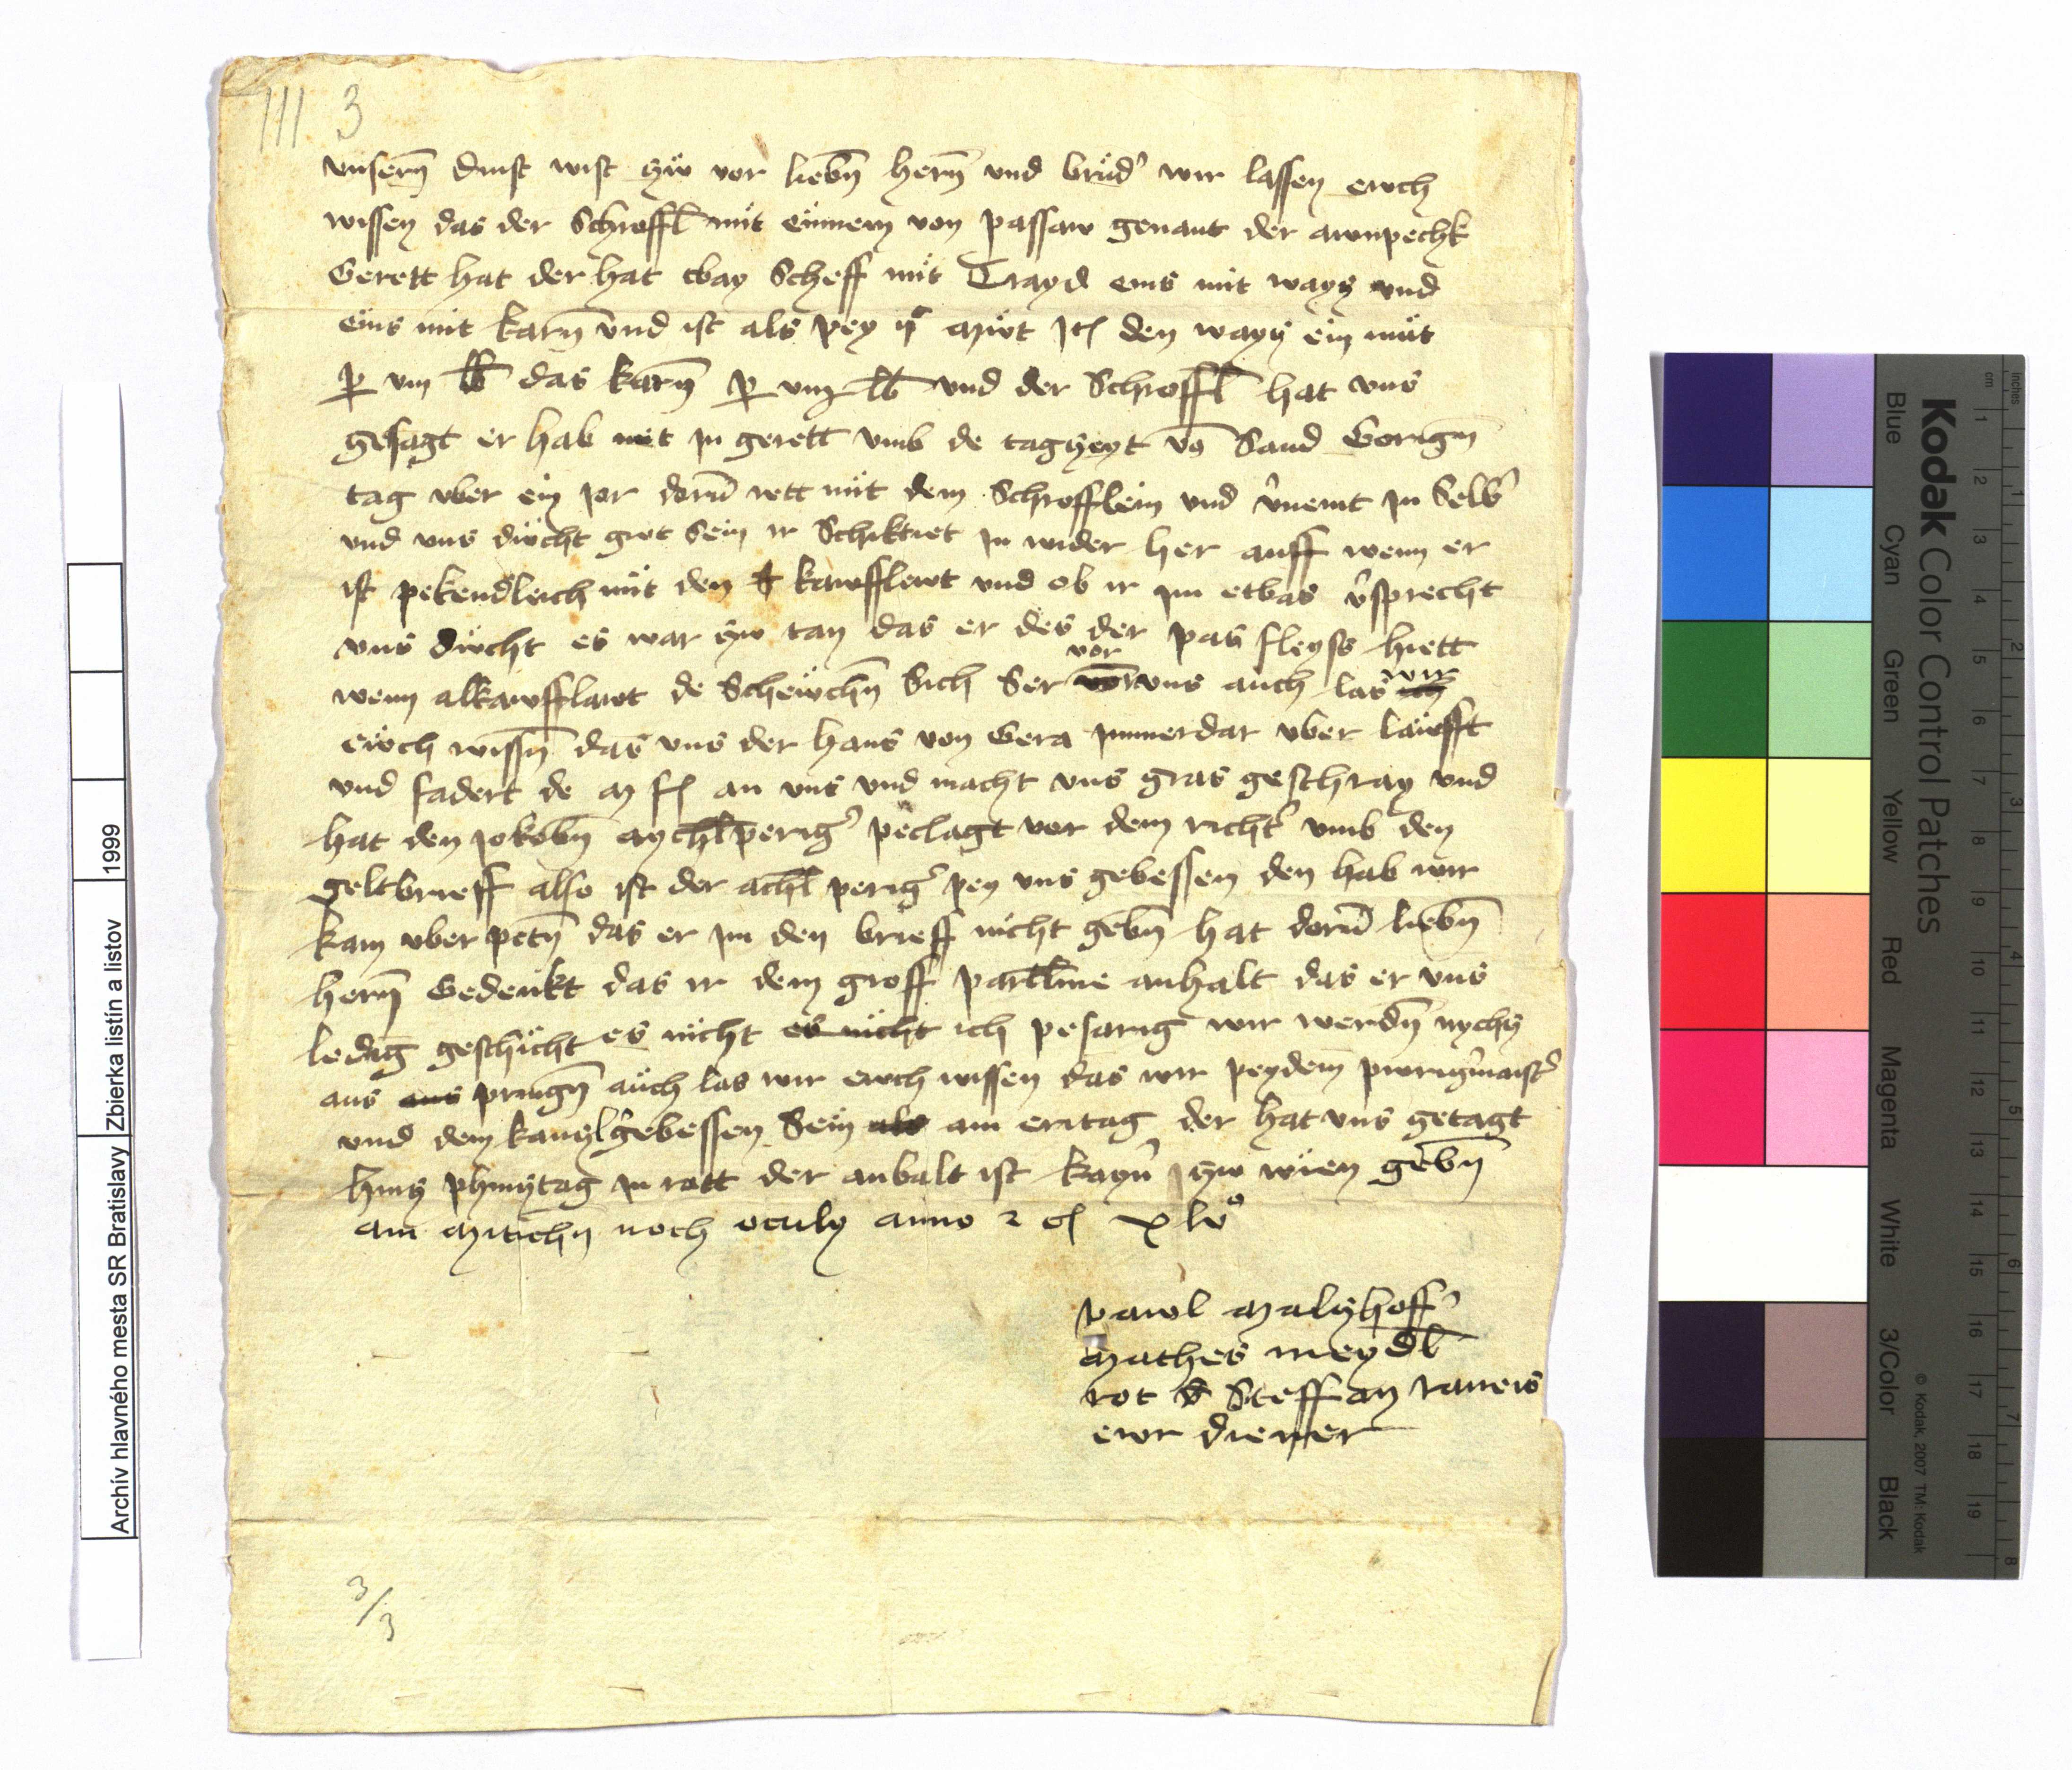 III 3
vnsern̄ dinst wist zẅ vor liebn̄ hern̄ vnd brüd' wir lassen ewch
wissen das der Schroffl mit einem von passaw genant der awnpechk
Gerett hat der hat tbay Scheff mit Trayd eins mit wayz vnd
eins mit karn̄ vnd ist als pey mut den wayz ein mut
vm lb das karn̄ vm lb vnd der Schroffl hat vns
gesagt er hab mit in gerett vmb de tagzeyt vō Sand Gorign̄
tag vber ein Jor dorū rett mit dem Schrofflein vnd v'nemt in Selb'
vnd vns dücht gut Sein ir Schiktiet in wider her auff wenn er
ist pekendleich mit den kawfflewt vnd ob ir im etbas v'sprecht
vns dücht es war zw tan das er des der pas fleyss hiett
wenn alkawfflawt de Scheẅchn̄ Sich Ser vor vns auch las wir
eẅch wissn̄ das vns der hans von Gera Immerdar vber laẅfft
vnd fadert de m fl an vns vnd macht vns gras geschray vnd
hat den Jokobn̄ aychlperig' peclagt vor dem richt' vmb den
geltbrieff also ist der achl perig' pey vns gebessen den hab wir
kam vber petn̄ das er im den brieff nicht gebn̄ hat dorū liebn̄
hern̄ Gedenkt das ir dem groff partlme anhalt das er vns
ledig geschicht es nicht es nicht ich pesarig wir werdn̄ nychz
aus aus pringn̄ auch las wir ewch wissen das wir peydem pwrig'maist'
vnd dem kanzl' gebessen Sein als am eritag der hat vns getagt
hinz phinztag in rott der anbalt ist kayn' zw wien gebn̄
am Mitichn̄ noch oculy anno xlvo
pawl Malzhoff'
Mathes meydl
rot Steffan raneis
ewr diener
3/3
Archív hlavného mesta SR Bratislavy Zbierka listín a listov 1999
Kodak Color Control Patches
Blue Cyan Green Yellow Red Magenta White 3/Color Black
© Kodak, 2007 TM: Kodak
cm 1 2 3 4 5 6 7 8 9 10 11 12 13 14 15 16 17 18 19
inches 1 2 3 4 5 6 7 8